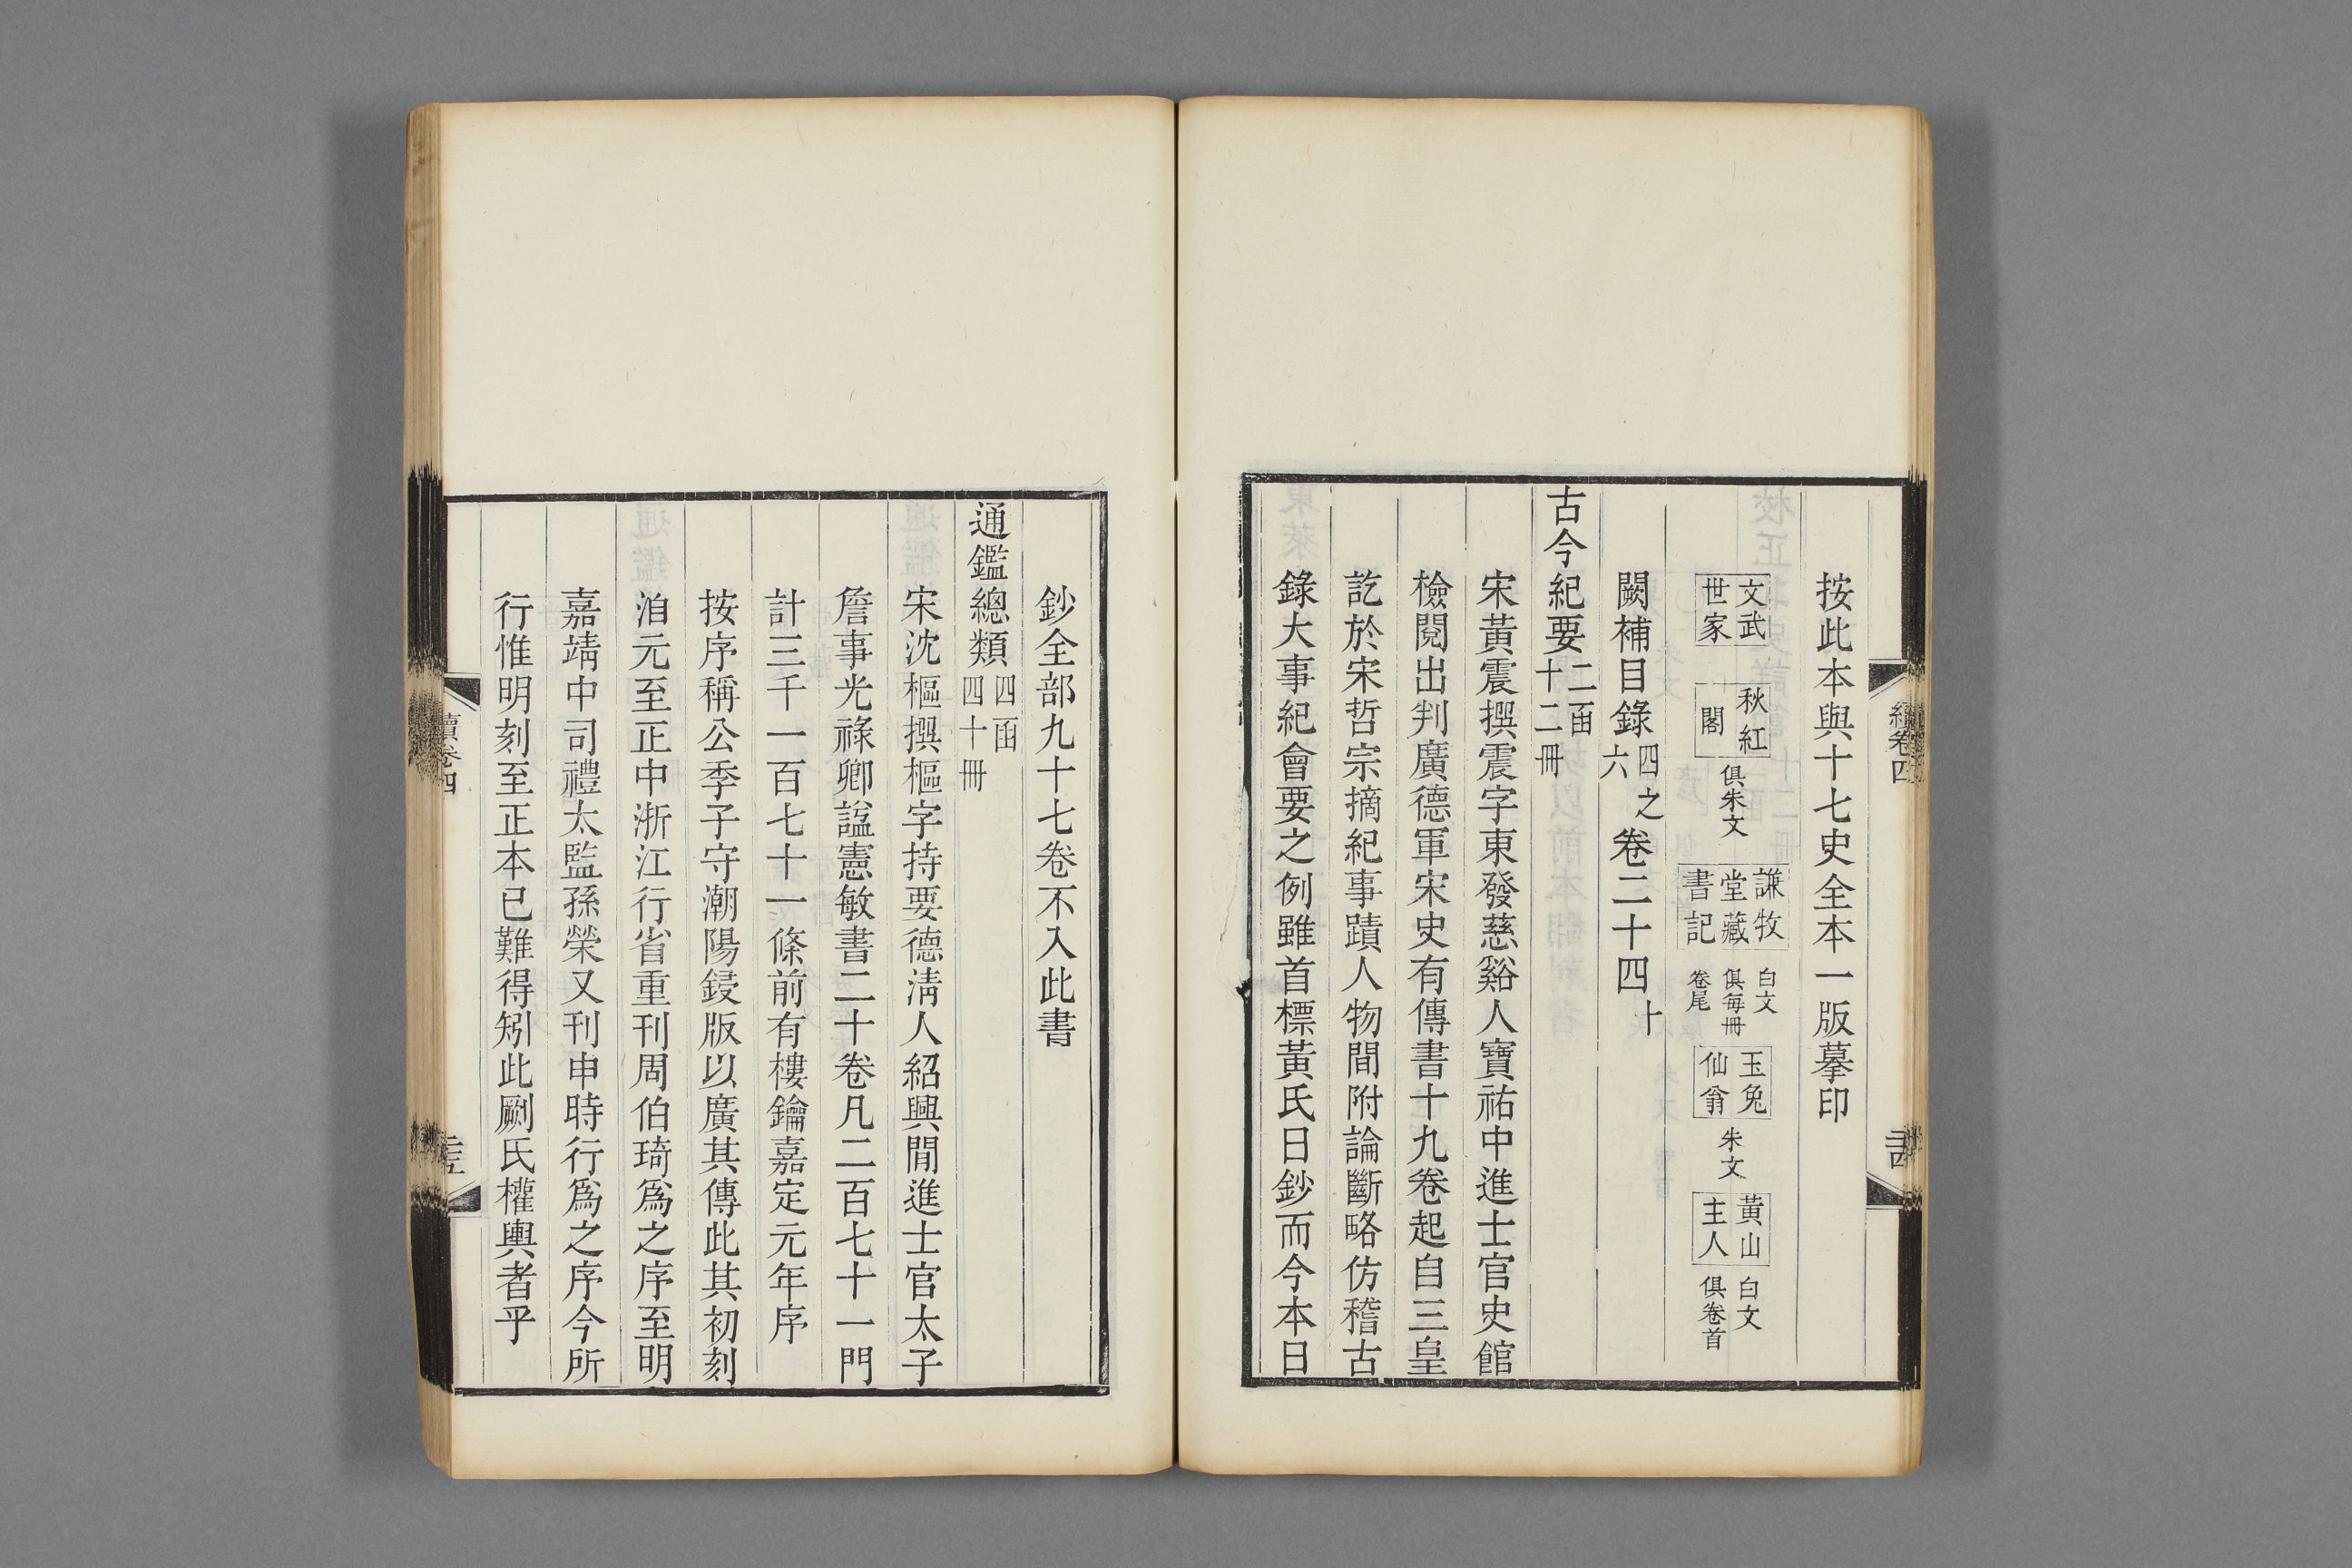 按此本與十七史全本一版摹印
文武世家
秋紅閣
俱朱文
謙牧堂藏書記
白文俱每冊卷尾
玉兔仙翁
朱文
黃山主人
白文俱卷首
闕補目錄四之六卷二十四十
古今紀要二函十二冊
宋黃震撰震字東發慈谿人寶祐中進士官史館
檢閱出判廣德軍宋史有傳書十九卷起自三皇
訖於宋哲宗摘紀事蹟人物間附論斷略仿稽古
錄大事紀會要之例雖首標黃氏日鈔而今本日
續卷四
鈔全部九十七卷不入此書
通鑑總類四函四十冊
宋沈樞撰樞字持要德清人紹興閒進士官太子
詹事光祿卿諡憲敏書二十卷凡二百七十一門
計三千一百七十一條前有樓鑰嘉定元年序
按序稱公季子守潮陽鋟版以廣其傳此其初刻
洎元至正中浙江行省重刊周伯琦爲之序至明
嘉靖中司禮太監孫榮又刊申時行爲之序今所
行惟明刻至正本已難得矧此劂氏權輿者乎
續卷四